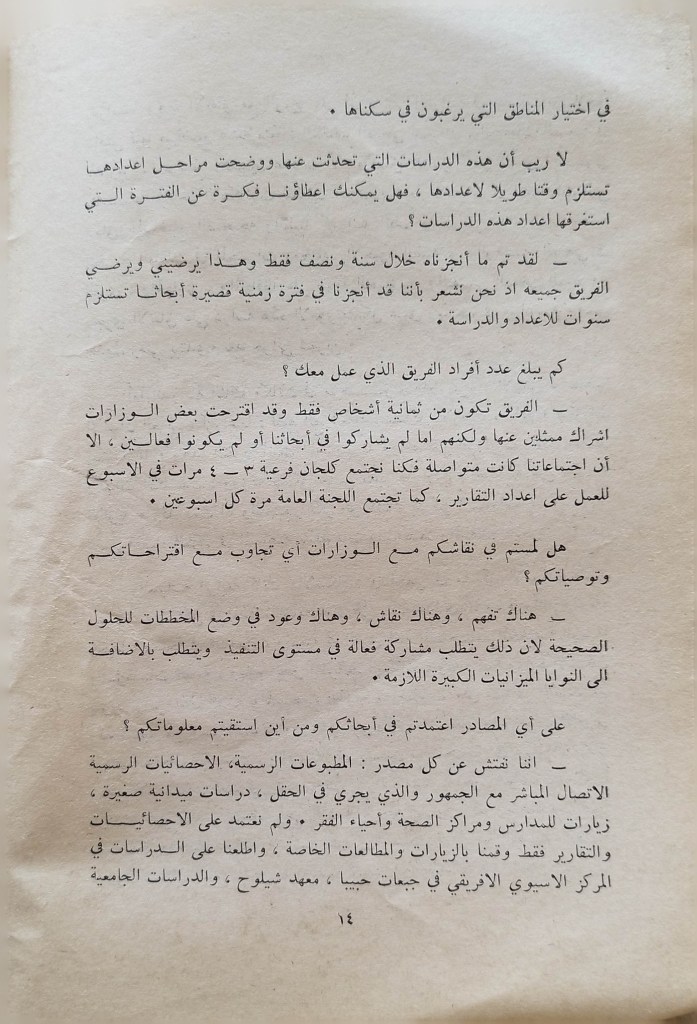 في اختيار المناطق التي يرغبون في سكناها •
لا ريب أن هذه الدراسات التي تحدثت عنها ووضحت مراحل اعدادها
تستلزم وقتا طويلا لاعدادها ، فهل يمكنك اعطاؤنا فكرة عن الفترة التي
استغرقها اعداد هذه الدراسات؟
ـ لقد تم ما أنجزناه خلال سنة ونصف فقط وهذا يرضيني ويرضي
الفريق جميعه اذ نحن نشعر بأننا قد أنجزنا في فترة زمنية قصيرة أبحاثا تستلزم
سنوات للاعداد والدراسة •
كم يبلغ عدد أفراد الفريق الذي عمل معك ؟
ـ الفريق تكون من ثمانية أشخاص فقط وقد اقترحت بعض الوزارات
اشراك ممثلين عنها ولكنهم اما لم يشاركوا في أبحاثنا أو لم يكونوا فعالين ، الا
أن اجتماعاتنا كانت متواصلة فكنا نجتمع كلجان فرعية ٣ ـ ٤ مرات في الاسبوع
للعمل على اعداد التقارير ، كما تجتمع اللجنة العامة مرة كل اسبوعين •
هل لمستم في نقاشكم مع الوزارات أي تجاوب مع اقتراحاتكم
وتوصياتكم ؟
ـ هناك تفهم ، وهناك نقاش ، وهناك وعود في وضع المخططات للحلول
الصحيحة لان ذلك يتطلب مشاركة فعالة في مستوى التنفيذ ويتطلب بالاضافة
الى النوايا الميزانيات الكبيرة اللازمة •
على أي المصادر اعتمدتم في أبحاثكم ومن أين استقيتم معلوماتكم ؟
ـ اننا نفتش عن كل مصدر : المطبوعات الرسمية، الاحصائيات الرسمية
الاتصال المباشر مع الجمهور والذي يجري في الحقل ، دراسات ميدانية صغيرة ،
زيارات للمدارس ومراكز الصحة وأحياء الفقر • ولم نعتمد على الاحصائيات
والتقارير فقط وقمنا بالزيارات والمطالعات الخاصة ، واطلعنا على الدراسات في
المركز الاسيوي الافريقي في جبعات حبيبا ، معهد شيلوح ، والدراسات الجامعية
١٤